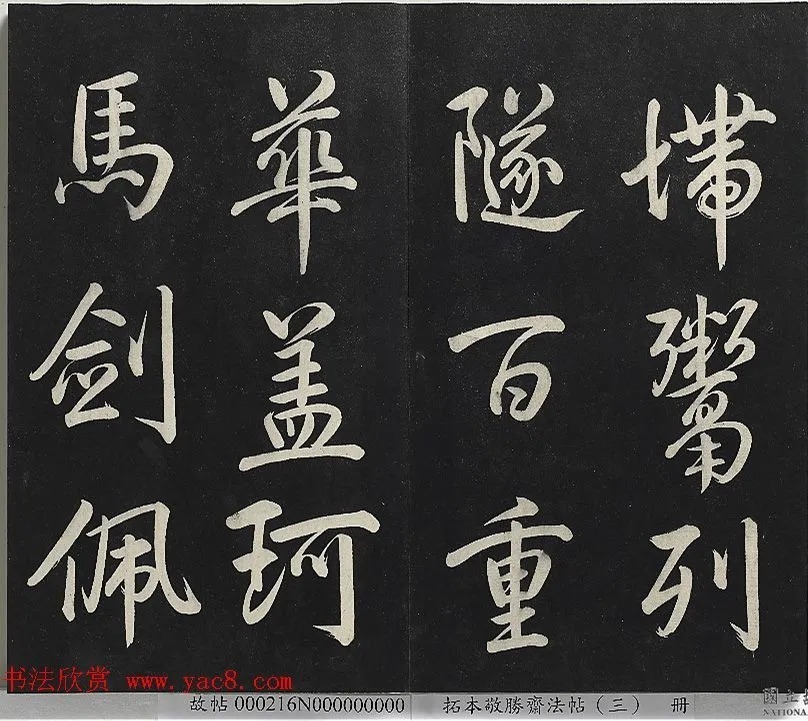 墆鬻列
隧百重
華盖珂
馬剑佩
书法欣赏 www.yac8.com
故帖 000216N000000000 拓本敬勝齋法帖（三） 册
國立
NATIONA